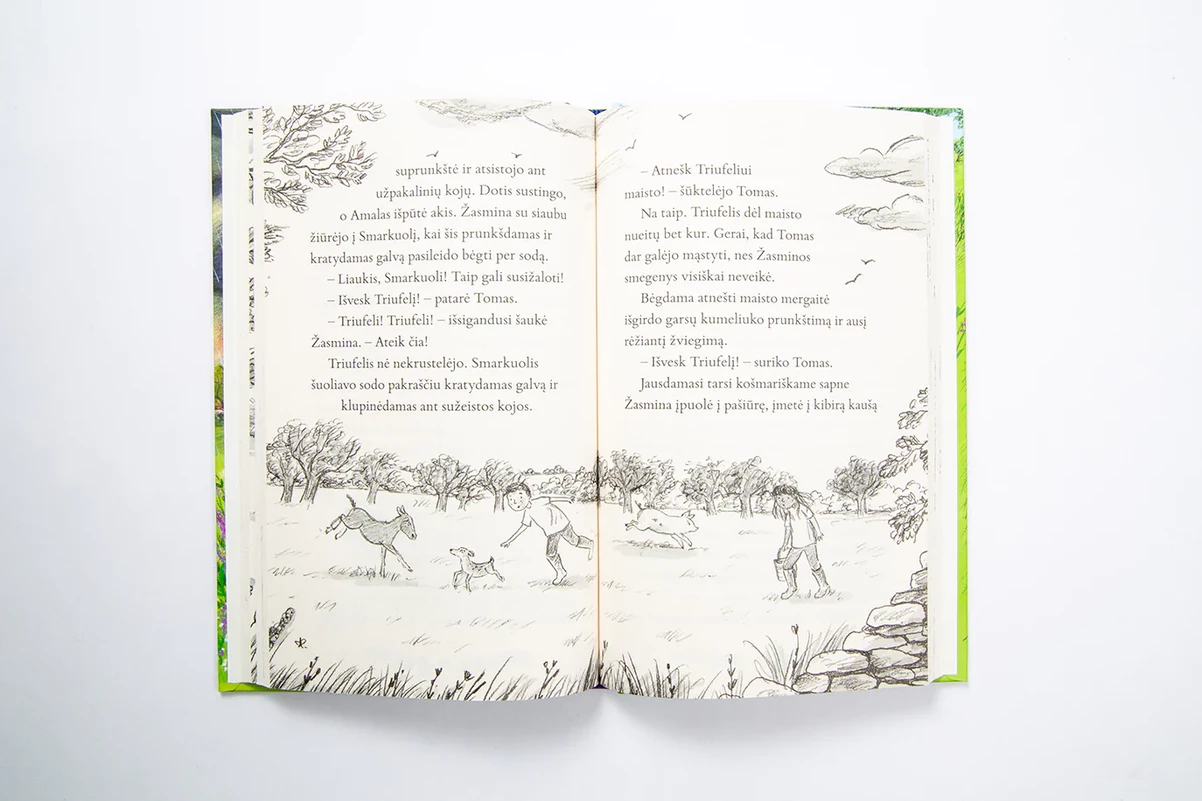 suprunkštė ir atsistojo ant
užpakalinių kojų. Dotis sustingo,
o Amalas išpūtė akis. Žasmina su siaubu
žiūrėjo į Smarkuolį, kai šis prunkšdamas ir
kratydamas galvą pasileido bėgti per sodą.
– Liaukis, Smarkuoli! Taip gali susižaloti!
– Išvesk Triufelį! – patarė Tomas.
– Triufeli! Triufeli! – išsigandusi šaukė
Žasmina. – Ateik čia!
Triufelis nė nekrustelėjo. Smarkuolis
šuoliavo sodo pakraščiu kratydamas galvą ir
klupinėdamas ant sužeistos kojos.
– Atnešk Triufeliui
maisto! – šūktelėjo Tomas.
Na taip. Triufelis dėl maisto
nueitų bet kur. Gerai, kad Tomas
dar galėjo mąstyti, nes Žasminos
smegenys visiškai neveikė.
Bėgdama atnešti maisto mergaitė
išgirdo garsų kumeliuko prunkštimą ir ausį
rėžiantį žviegimą.
– Išvesk Triufelį! – suriko Tomas.
Jausdamasi tarsi košmariškame sapne
Žasmina įpuolė į pašiūrę, įmetė į kibirą kaušą